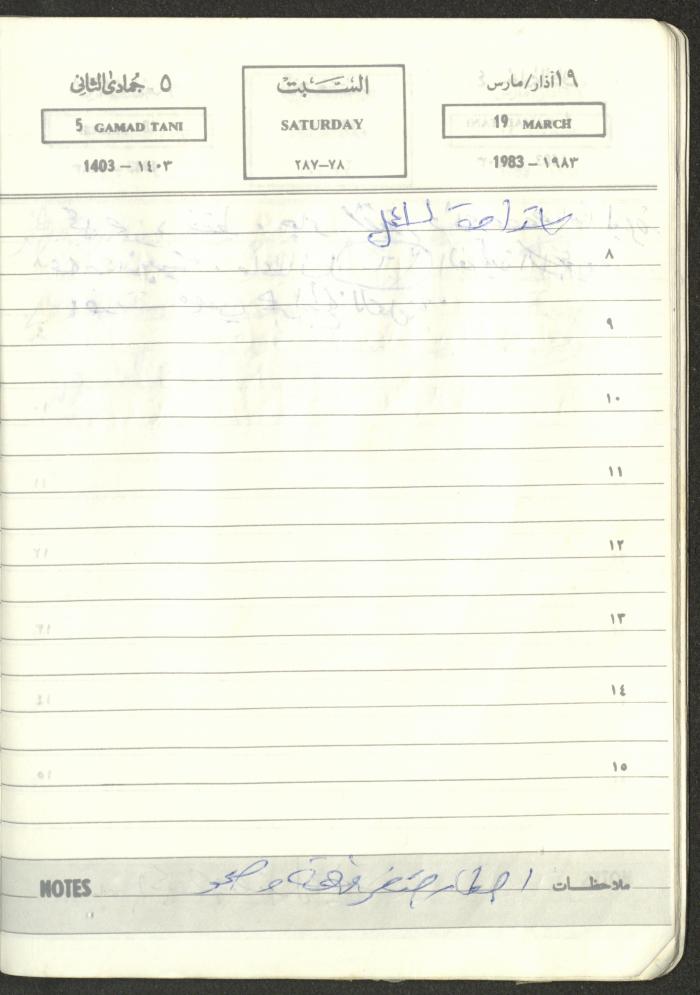 ١٩ آذار/مارس السَّبت ٥ جُمادى الثاني
19 MARCH SATURDAY 5 GAMAD TANI
1983 – ١٩٨٣ ٢٨٧–٧٨ 1403 – ١٤٠٣
استراحة
٨
٩
١٠
١١
١٢
١٣
١٤
١٥
ملاحظات امطار متفرقة وصحو NOTES